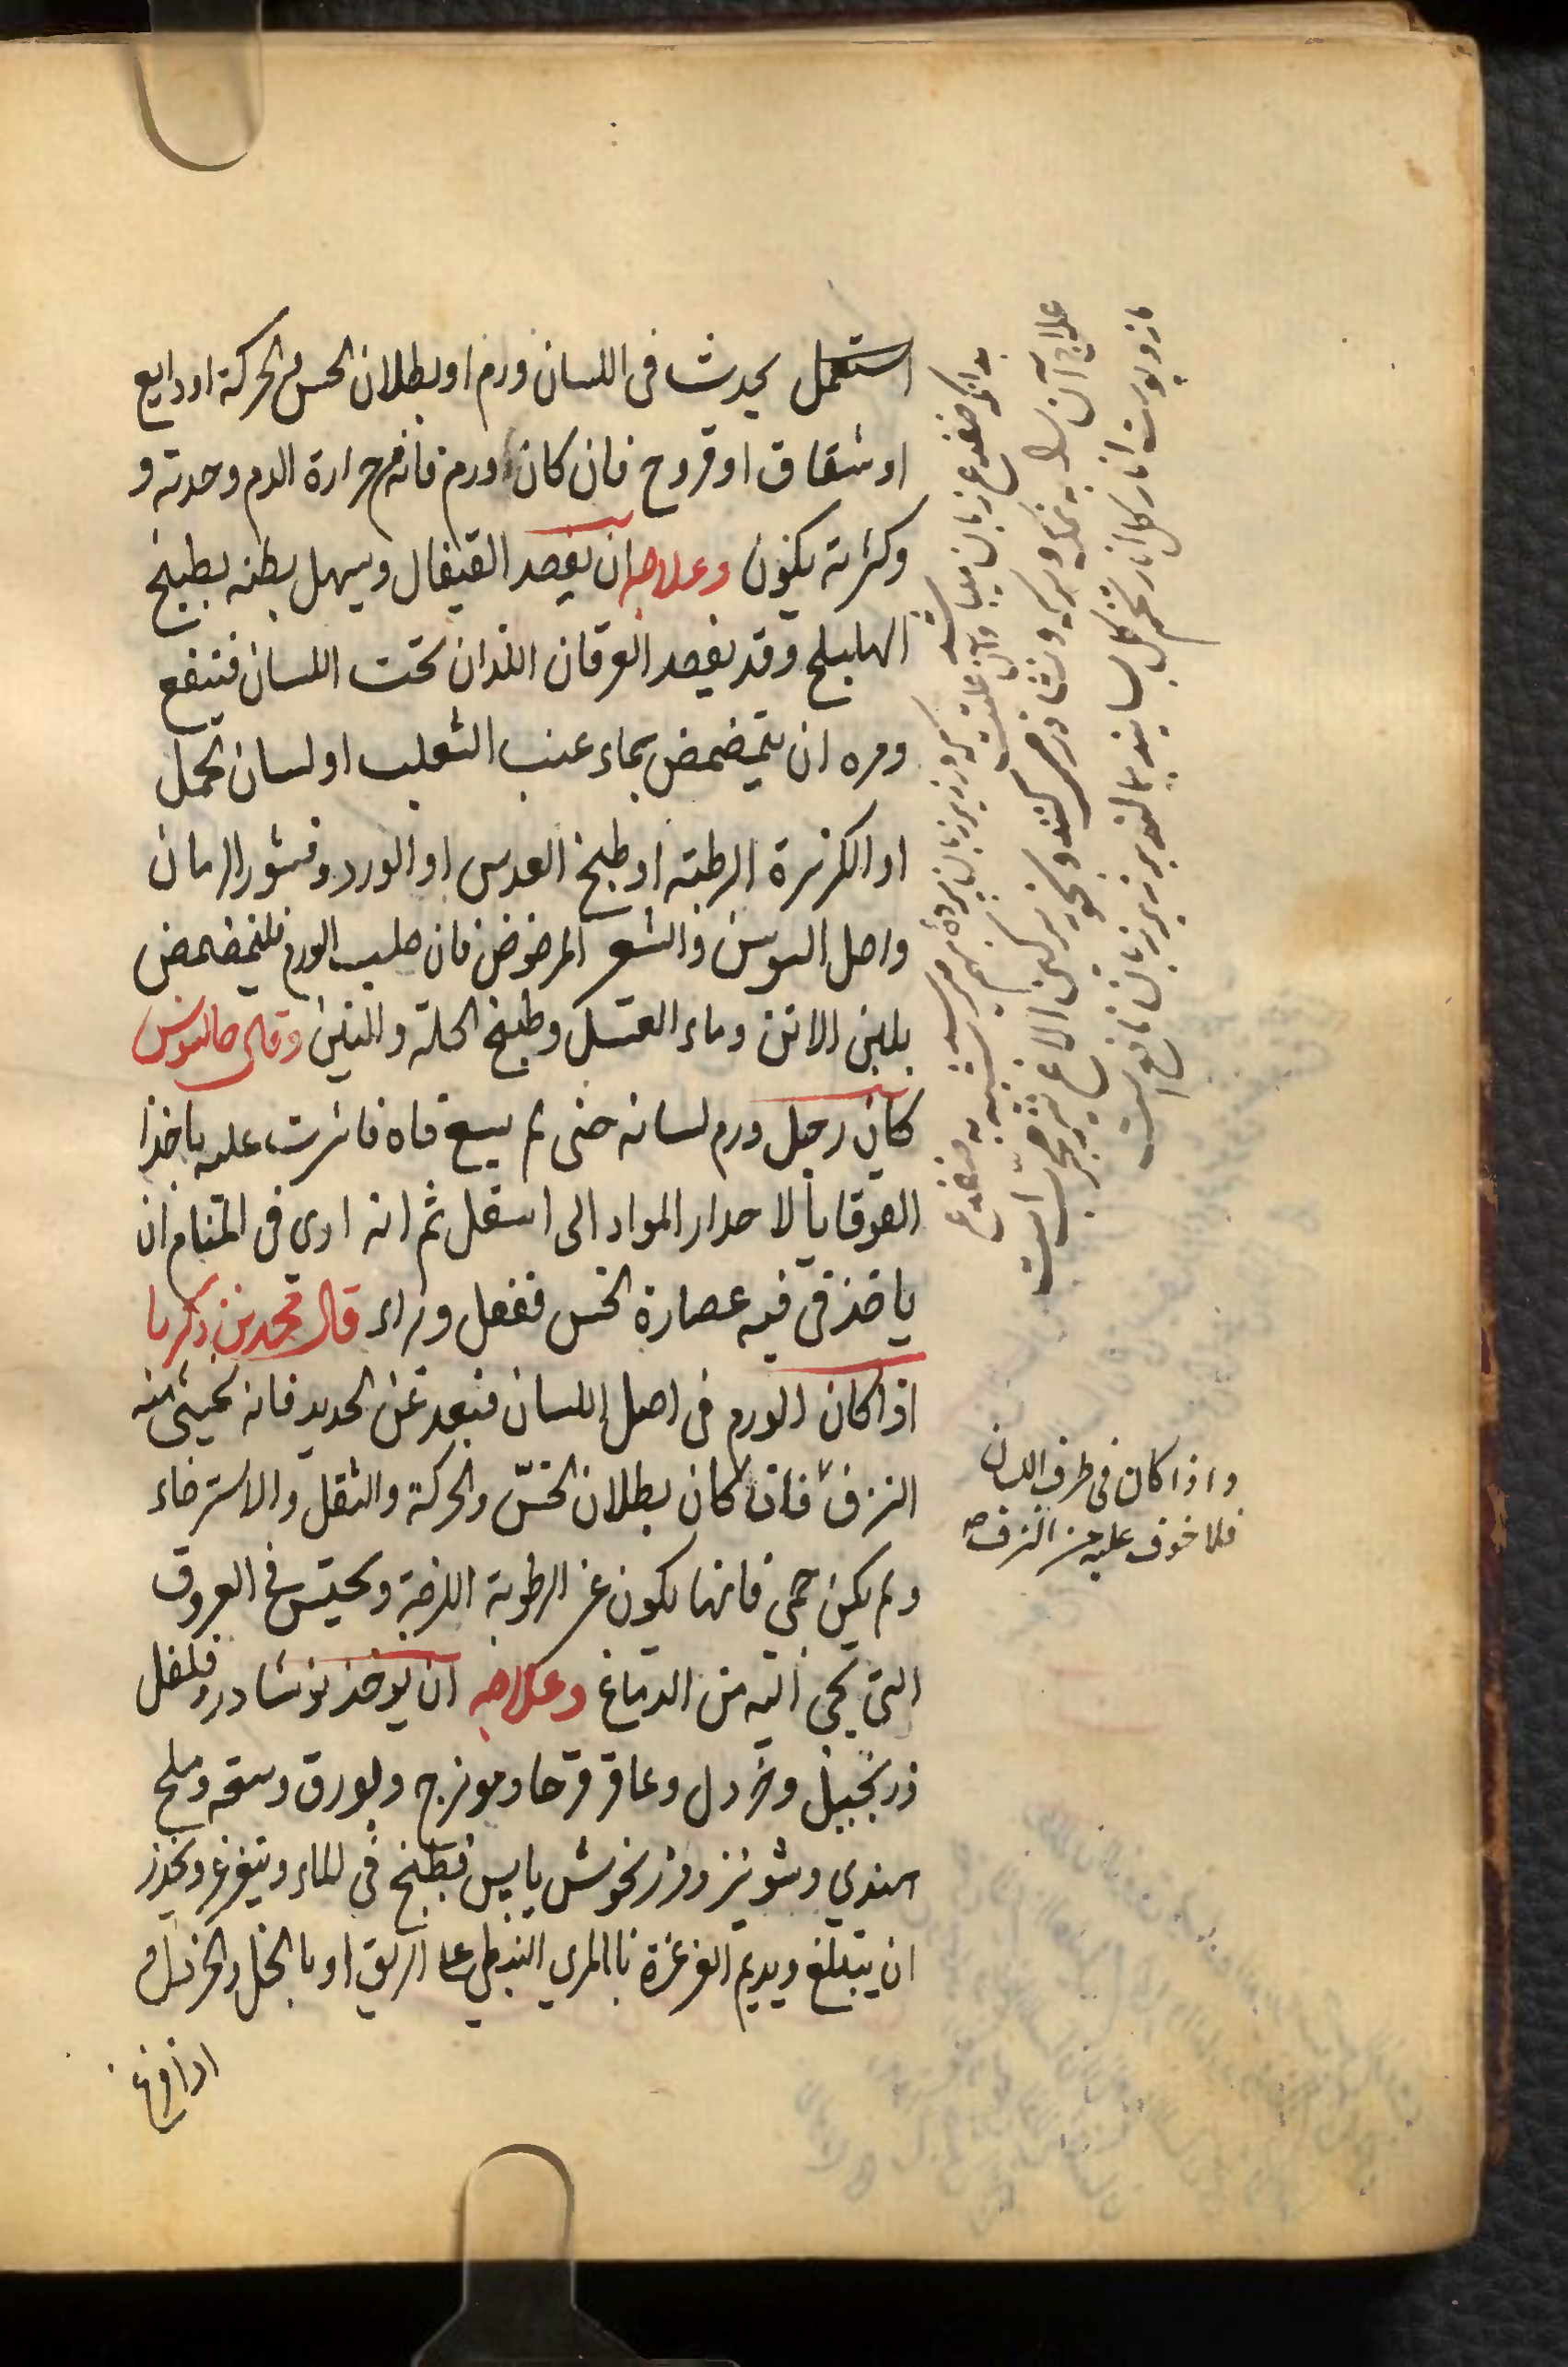 استعمل يحدث فى اللسان ورم او بطلان الحس والحركة او دايع
او شقاق او قروح فان كان ورم فانه من حرارة الدم وحدته و
وكثرته يكون وعلاجه ان يفصد القيفال ويسهل بطنه بطبيخ
الهليلج وقد يفصد العرقان اللذان تحت اللسان فينفع
ومره ان يتمضمض بماء عنب الثعلب او لسان الحمل
او الكزبرة الرطبة او طبيخ العدس او الورد وقشور الرمان
واصل السوس والشعير المرضوض فان صلب الورم فليتمضمض
بلبن الاتن وماء العسل وطبيخ الحلبة والتين وقال جالينوس
كان رجل ورم لسانه حتى لم يسع فاه فاشرت عليه باخذ
القوقايا لاحدار المواد الى اسفل ثم انه ارى فى المنام ان
ياخذ فى فيه عصارة الخس ففعل وبراء قال محمد بن زكريا
اذا كان الورم فى اصل اللسان فبعد عن الحديد فانه يخشى منه
النزف فان كان بطلان الحس والحركة والثقل والاسترخاء
ولم يكن حمى فانها يكون عن الرطوبة اللزجة ويحتبس فى العروق
التى يجى اليه من الدماغ وعلاجه ان يوخذ نوشادر وفلفل
وزنجبيل وخردل وعاقر قرحا وموزج وبورق وسعتر وملح
هندي وشونيز ومرزنجوش يابس فيطبخ فى الماء ويتغرغر ويحذر
ان يتبلع ويديم الغرغرة بالمري النبطي على الريق او بالخل والخردل
اذا فرغ
واذا كان فى طرف اللسان
فلا خوف عليه من النزف صح
بدانكه ضفدع زبان
علاج آن
مازو پوست انار كل انار